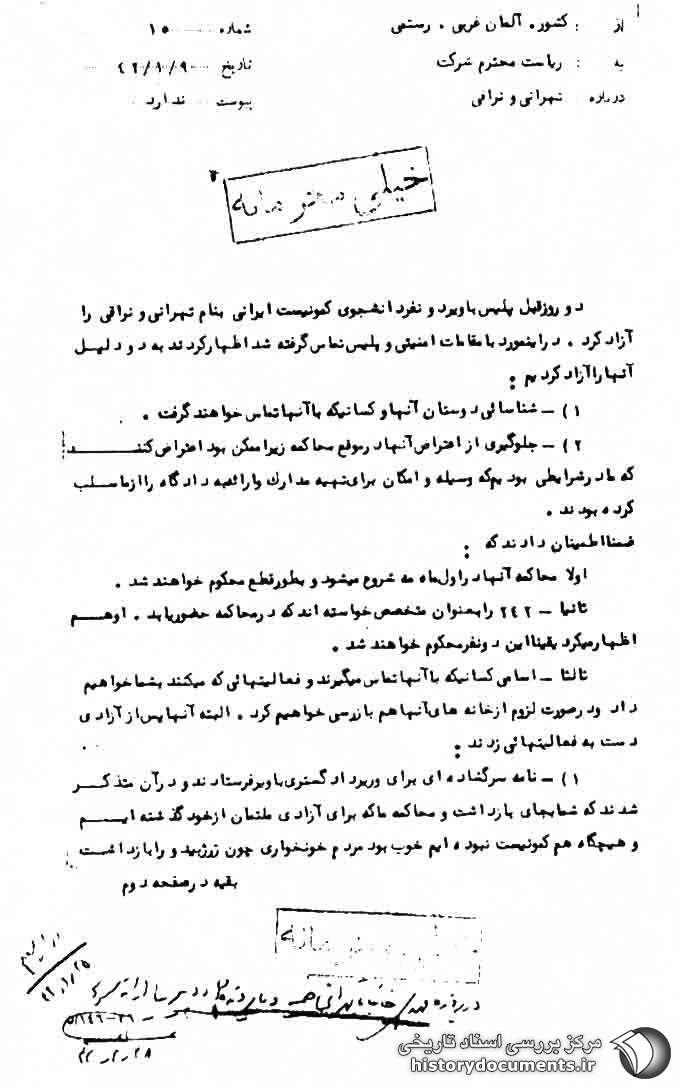 از : کشور. آلمان غربی . رستمی
شماره ۱۵۰
به : ریاست محترم شرکت
تاریخ ۴۲/۱/۹۰
درباره : تهرانی و نراقی
پیوست ندارد
خیلی محرمانه
دو روز قبل پلیس باویر دو نفر دانشجوی کمونیست ایرانی بنام تهرانی و نراقی را
آزاد کرد . در اینمورد با مقامات امنیتی و پلیس تماس گرفته شد اظهار کردند به دو دلیل
آنها را آزاد کردیم :
۱) – شناسائی دوستان آنها و کسانیکه با آنها تماس خواهند گرفت .
۲) – جلوگیری از اعتراض آنها در موقع محاکمه زیرا ممکن بود اعتراض کنند
که ما در شرایطی بودیم که وسیله و امکان برای تهیه مدارک و ارائه به دادگاه را از ما سلب
کرده بودند .
ضمنا اطمینان دادند که :
اولا محاکمه آنها در اول ماه مه شروع میشود و بطور قطع محکوم خواهند شد .
ثانیا – ۲۴۲ را بعنوان متخصص خواسته اند که در محاکمه حضور یابد . او هم
اظهار میکرد یقینا این دو نفر محکوم خواهند شد .
ثالثا – اسامی کسانیکه با آنها تماس میگیرند و فعالیتهائی که میکنند بشما خواهیم
داد و در صورت لزوم از خانه های آنها هم بازرسی خواهیم کرد . البته آنها پس از آزادی
دست به فعالیتهائی زدند :
۱) – نامه سرگشاده ای برای وزیر دادگستری باویر فرستادند و در آن متذکر
شدند که شما بجای بازداشت و محاکمه ما که برای آزادی ملتمان از خود گذشته ایم
و هیچگاه هم کمونیست نبوده ایم خوب بود مردم خونخواری چون زرژبید و را بازداشت
بقیه در صفحه دوم
مرکز بررسی اسناد تاریخی
historydocuments.ir